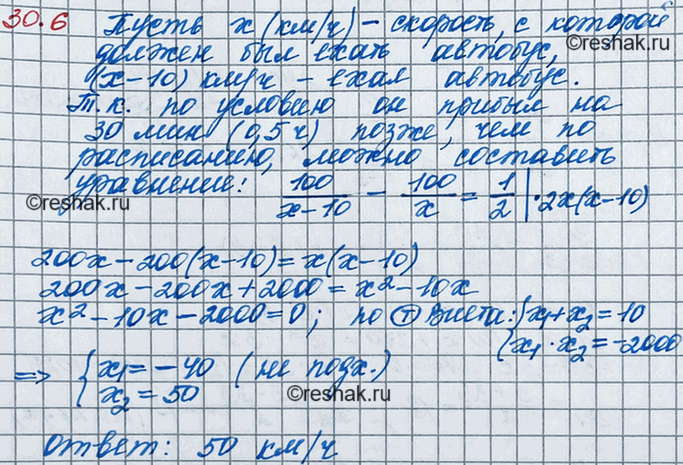 30.6 Пусть x (км/ч) – скорость, с которой
должен был ехать автобус,
©reshak.ru
(x-10) км/ч – ехал автобус.
Т.к. по условию он прибыл на
30 мин (0,5 ч) позже, чем по
расписанию, можно составить
уравнение: 100/(x-10) - 100/x = 1/2 | ·2x(x-10)
©reshak.ru
200x-200(x-10)=x(x-10)
200x-200x+2000=x²-10x
x²-10x-2000=0; по Т Виета: {x₁+x₂=10
{x₁·x₂=-2000
=> {x₁=-40 (не подх.)
{x₂=50
©reshak.ru
Ответ: 50 км/ч